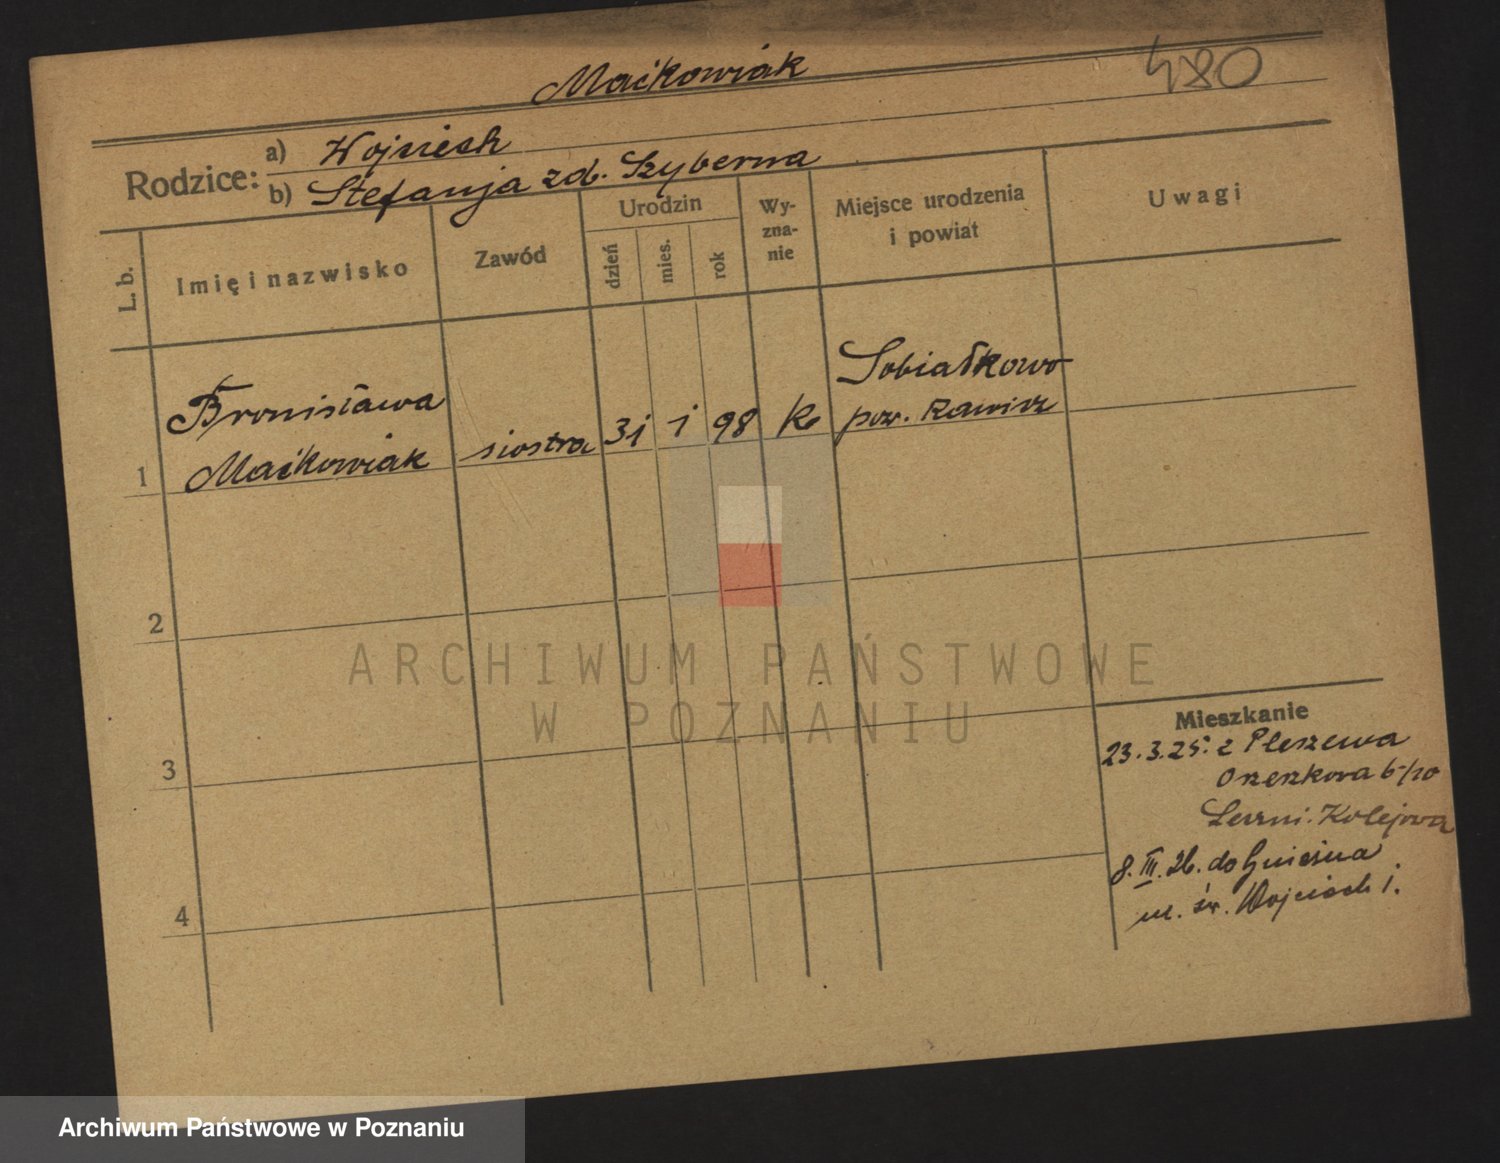 Maćkowiak
480
Rodzice:
a) Wojciech
b) Stefanja zd. Szyberna
L. b.
Imię i nazwisko
Zawód
Urodzin
dzień
mies.
rok
Wy-
zna-
nie
Miejsce urodzenia
i powiat
Uwagi
1
Bronisława
Maćkowiak
siostra
31
1
98
k
Sobiałkowo
pow. Rawicz
2
3
4
Mieszkanie
23.3.25. z Pleszewa
Orzeszkowa
Kolejowa
8. III. 26. do Gniezna
ul. św. Wojciech 1.
ARCHIWUM PAŃSTWOWE
W POZNANIU
Archiwum Państwowe w Poznaniu